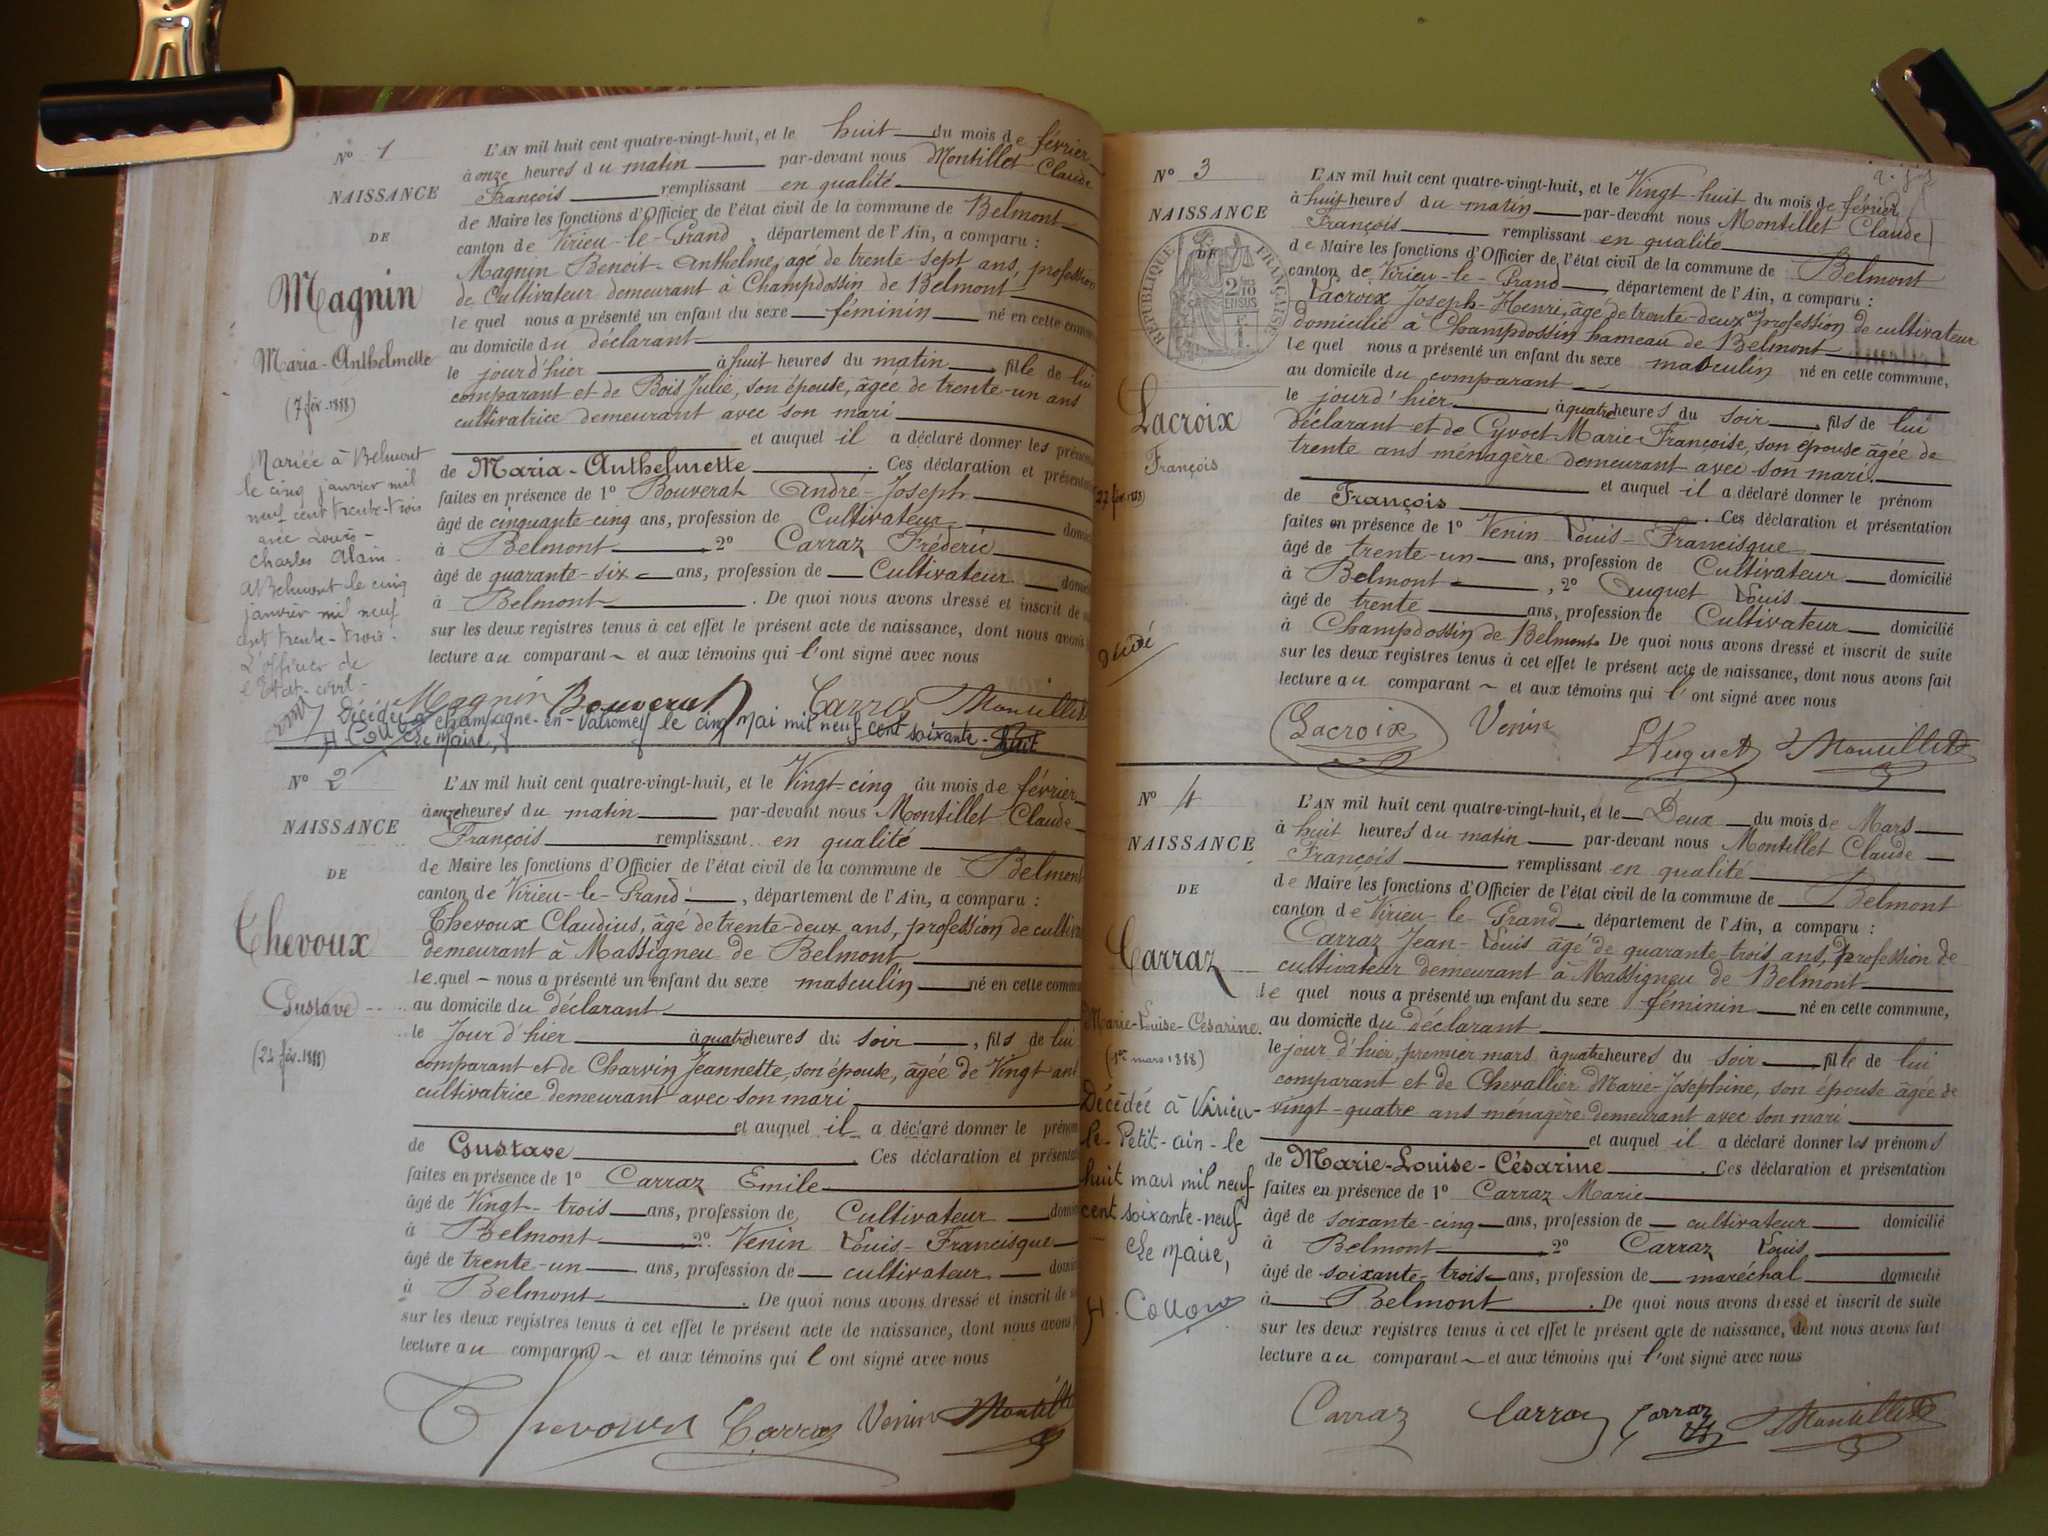 N° 1
NAISSANCE
DE
Magnin
Maria-Anthelmette
(7 fév. 1888)
Mariée à Belmont
le cinq janvier mil
neuf cent trente-trois
avec Louis-
Charles Alain.
A Belmont le cinq
janvier mil neuf
cent trente-trois.
L'officier de
l'Etat-civil-
L'AN mil huit cent quatre-vingt-huit, et le huit du mois de février
à onze heures du matin par-devant nous Montillet Claude
François remplissant en qualité
de Maire les fonctions d'Officier de l'état civil de la commune de Belmont
canton de Virieu-le-Grand, département de l'Ain, a comparu :
Magnin Benoit-Anthelme, agé de trente-sept ans, profession
de Cultivateur demeurant à Champdossin de Belmont
lequel nous a présenté un enfant du sexe féminin né en cette commune
au domicile du déclarant
le jourd'hier à huit heures du matin, fille de lui
comparant et de Bois Julie, son épouse, âgée de trente-un ans
cultivatrice demeurant avec son mari
et auquel il a déclaré donner les prénoms
de Maria-Anthelmette. Ces déclaration et présentation
faites en présence de 1° Bouverat André-Joseph
âgé de cinquante-cinq ans, profession de Cultivateur domicilié
à Belmont 2° Carraz Fréderic
âgé de quarante-six ans, profession de Cultivateur domicilié
à Belmont. De quoi nous avons dressé et inscrit de suite
sur les deux registres tenus à cet effet le présent acte de naissance, dont nous avons
lecture au comparant et aux témoins qui l'ont signé avec nous
Magnin Bouverat Carraz Montillet
Décédée à Champagne-en-Valromey le cinq mai mil neuf cent soixante-huit
Le Maire,
N° 2
NAISSANCE
DE
Thevoux
Gustave
(24 fév. 1888)
L'AN mil huit cent quatre-vingt-huit, et le Vingt-cinq du mois de février
à onze heures du matin par-devant nous Montillet Claude
François remplissant en qualité
de Maire les fonctions d'Officier de l'état civil de la commune de Belmont
canton de Virieu-le-Grand, département de l'Ain, a comparu :
Thevoux Claudius, âgé de trente-deux ans, profession de cultiva
demeurant à Massigneu de Belmont
lequel nous a présenté un enfant du sexe masculin né en cette commune
au domicile du déclarant
le Jour d'hier à quatre heures du soir, fils de lui
comparant et de Charvin Jeannette, son épouse, âgée de Vingt ans
cultivatrice demeurant avec son mari
et auquel il a déclaré donner le prénom
de Gustave. Ces déclaration et présentation
faites en présence de 1° Carraz Emile
âgé de Vingt-trois ans, profession de Cultivateur domicilié
à Belmont 2° Venin Louis-Francisque
âgé de trente-un ans, profession de cultivateur domicilié
à Belmont. De quoi nous avons dressé et inscrit de suite
sur les deux registres tenus à cet effet le présent acte de naissance, dont nous avons
lecture au comparant et aux témoins qui l'ont signé avec nous
Thevoux Carraz Venin Montillet
N° 3
NAISSANCE
DE
RÉPUBLIQUE FRANÇAISE
2 10 EN SUS
Lacroix
François
(27 fév. 1888)
L'AN mil huit cent quatre-vingt-huit, et le Vingt-huit du mois de février
à huit heures du matin par-devant nous Montillet Claude
François remplissant en qualité
de Maire les fonctions d'Officier de l'état civil de la commune de Belmont
canton de Virieu-le-Grand, département de l'Ain, a comparu :
Lacroix Joseph-Henri, âgé de trente-deux ans profession de cultivateur
domicilié à Champdossin hameau de Belmont
lequel nous a présenté un enfant du sexe masculin né en cette commune,
au domicile du comparant
le jourd'hier à quatre heures du soir, fils de lui
déclarant et de Cyvoct Marie-Françoise, son épouse âgée de
trente ans ménagère demeurant avec son mari.
et auquel il a déclaré donner le prénom
de François. Ces déclaration et présentation
faites en présence de 1° Venin Louis-Francisque
âgé de trente-un ans, profession de Cultivateur domicilié
à Belmont, 2° Auguet Louis
âgé de trente ans, profession de Cultivateur domicilié
à Champdossin de Belmont. De quoi nous avons dressé et inscrit de suite
sur les deux registres tenus à cet effet le présent acte de naissance, dont nous avons fait
lecture au comparant et aux témoins qui l'ont signé avec nous
Lacroix Venin L Auguet Montillet
N° 4
NAISSANCE
DE
Carraz
Marie-Louise-Césarine.
(1er mars 1888)
Décédée à Virieu-
le-Petit-ain-le
huit mars mil neuf
cent soixante-neuf
Le Maire,
L'AN mil huit cent quatre-vingt-huit, et le Deux du mois de Mars
à huit heures du matin par-devant nous Montillet Claude
François remplissant en qualité
de Maire les fonctions d'Officier de l'état civil de la commune de Belmont
canton de Virieu-le-Grand, département de l'Ain, a comparu :
Carraz Jean-Louis âgé de quarante-trois ans, profession de
cultivateur demeurant à Massigneu de Belmont
lequel nous a présenté un enfant du sexe féminin né en cette commune,
au domicile du déclarant
le jour d'hier, premier mars à quatre heures du soir fille de lui
comparant et de Chevallier Marie-Joséphine, son épouse âgée de
vingt-quatre ans ménagère demeurant avec son mari
et auquel il a déclaré donner les prénoms
de Marie-Louise-Césarine. Ces déclaration et présentation
faites en présence de 1° Carraz Marie
âgé de soixante-cinq ans, profession de cultivateur domicilié
à Belmont 2° Carraz Louis
âgé de soixante-trois ans, profession de maréchal domicilié
à Belmont. De quoi nous avons dressé et inscrit de suite
sur les deux registres tenus à cet effet le présent acte de naissance, dont nous avons fait
lecture au comparant et aux témoins qui l'ont signé avec nous
Carraz Carraz Carraz Montillet